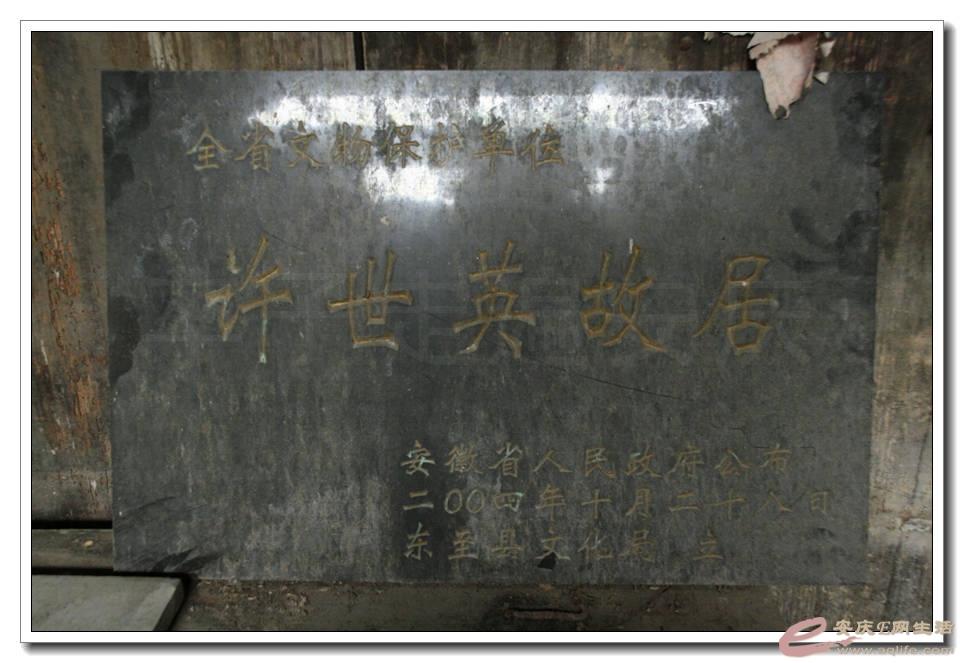 全省文物保护单位
许世英故居
安徽省人民政府公布
二00四年十月二十八日
东至县文化局 立
安庆E网生活
www.aqlife.com